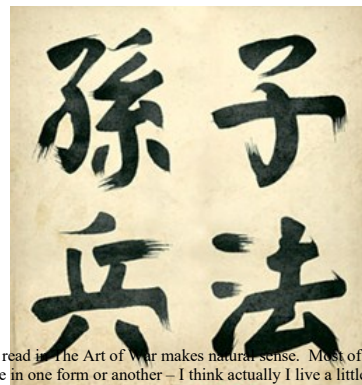 孫子
兵法
read in The Art of War makes natural sense. Most of
e in one form or another – I think actually I live a little